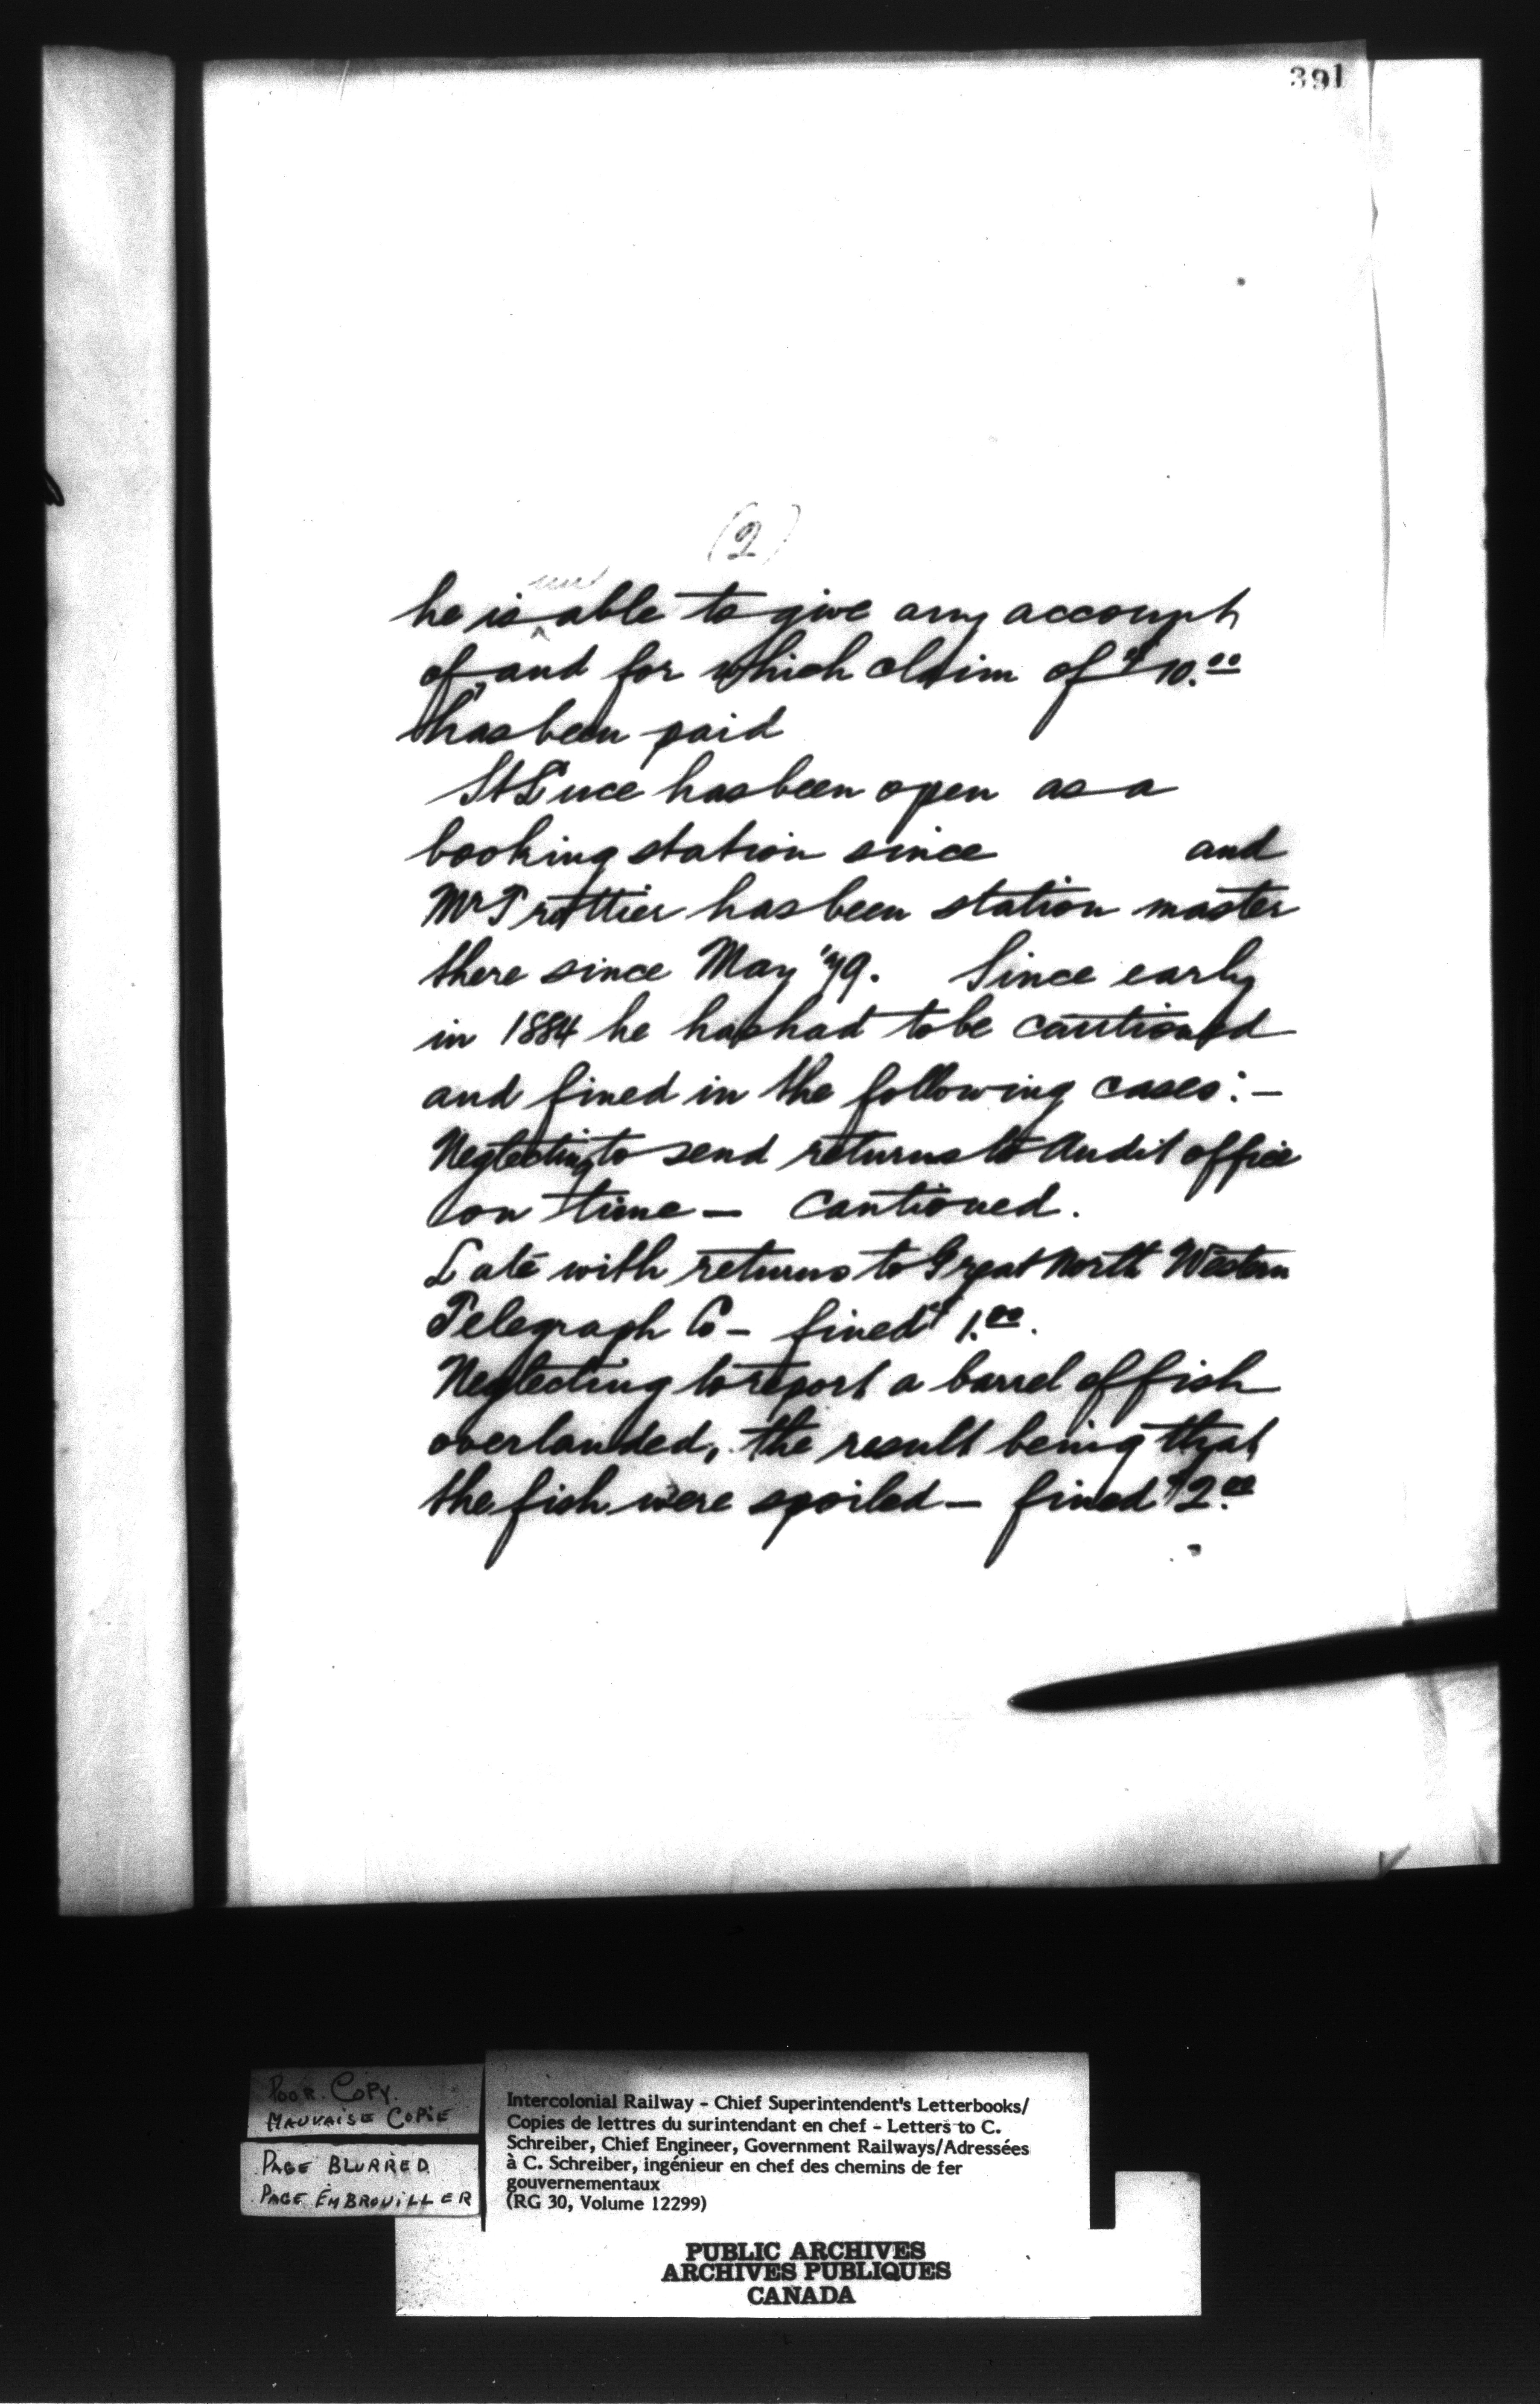 391
(2)
he is unable to give any account
of and for which claim of $10.00
has been paid
St Luce has been open as a
booking station since and
Mr Trottier has been station master
there since May '79. Since early
in 1884 he has had to be cautioned
and fined in the following cases:—
Neglecting to send returns to Audit office
on time — Cautioned.
Late with returns to Great North Western
Telegraph Co — fined $1.00.
Neglecting to report a barrel of fish
overlanded, the result being that
the fish were spoiled — fined $2.00
POOR COPY.
MAUVAISE COPIE
PAGE BLURRED
PAGE EMBROUILLER
Intercolonial Railway - Chief Superintendent's Letterbooks/
Copies de lettres du surintendant en chef - Letters to C.
Schreiber, Chief Engineer, Government Railways/Adressées
à C. Schreiber, ingénieur en chef des chemins de fer
gouvernementaux
(RG 30, Volume 12299)
PUBLIC ARCHIVES
ARCHIVES PUBLIQUES
CANADA